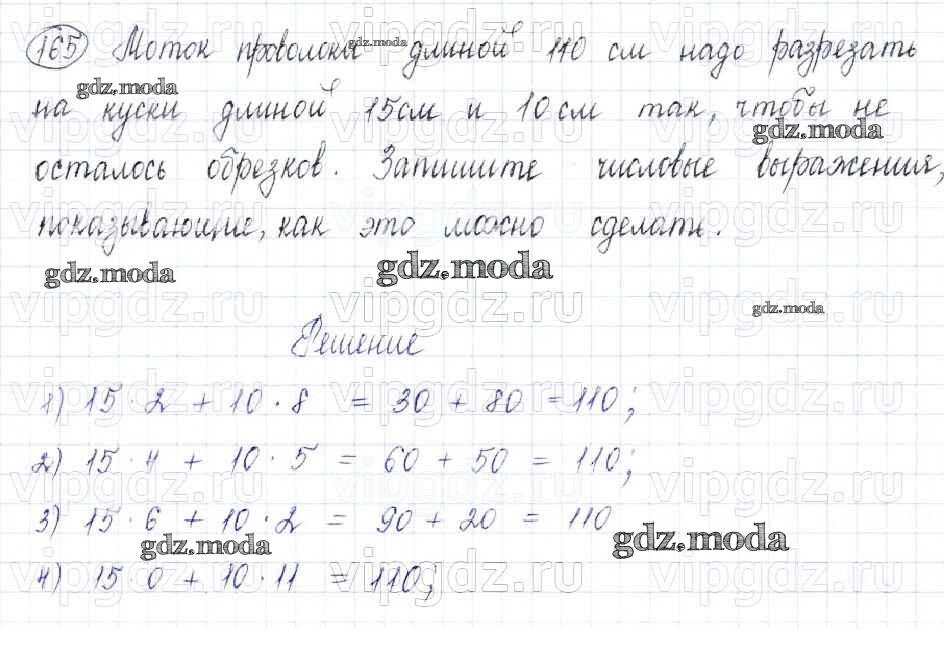 165 Моток проволоки длиной 110 см надо разрезать
на куски длиной 15 см и 10 см так, чтобы не
осталось обрезков. Запишите числовые выражения,
показывающие, как это можно сделать.
Решение
1) 15 · 2 + 10 · 8 = 30 + 80 = 110;
2) 15 · 4 + 10 · 5 = 60 + 50 = 110;
3) 15 · 6 + 10 · 2 = 90 + 20 = 110
4) 15 0 + 10 · 11 = 110;
gdz.moda
vipgdz.ru